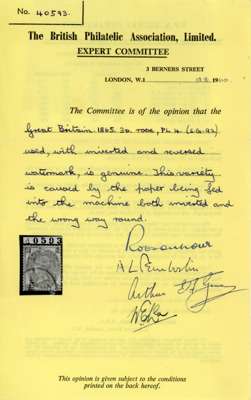 No. 40593.
The British Philatelic Association, Limited.
EXPERT COMMITTEE
3 BERNERS STREET
LONDON, W.1 19
The Committee is of the opinion that the
Great Britain 1865. 3d rose, Pl. 4. (S.G. 92)
used, with inverted and reversed
watermark, is genuine. This variety
is caused by the paper being fed
into the machine both inverted and
the wrong way round.
40593
A L Pemberton
Arthur
This opinion is given subject to the conditions
printed on the back hereof.